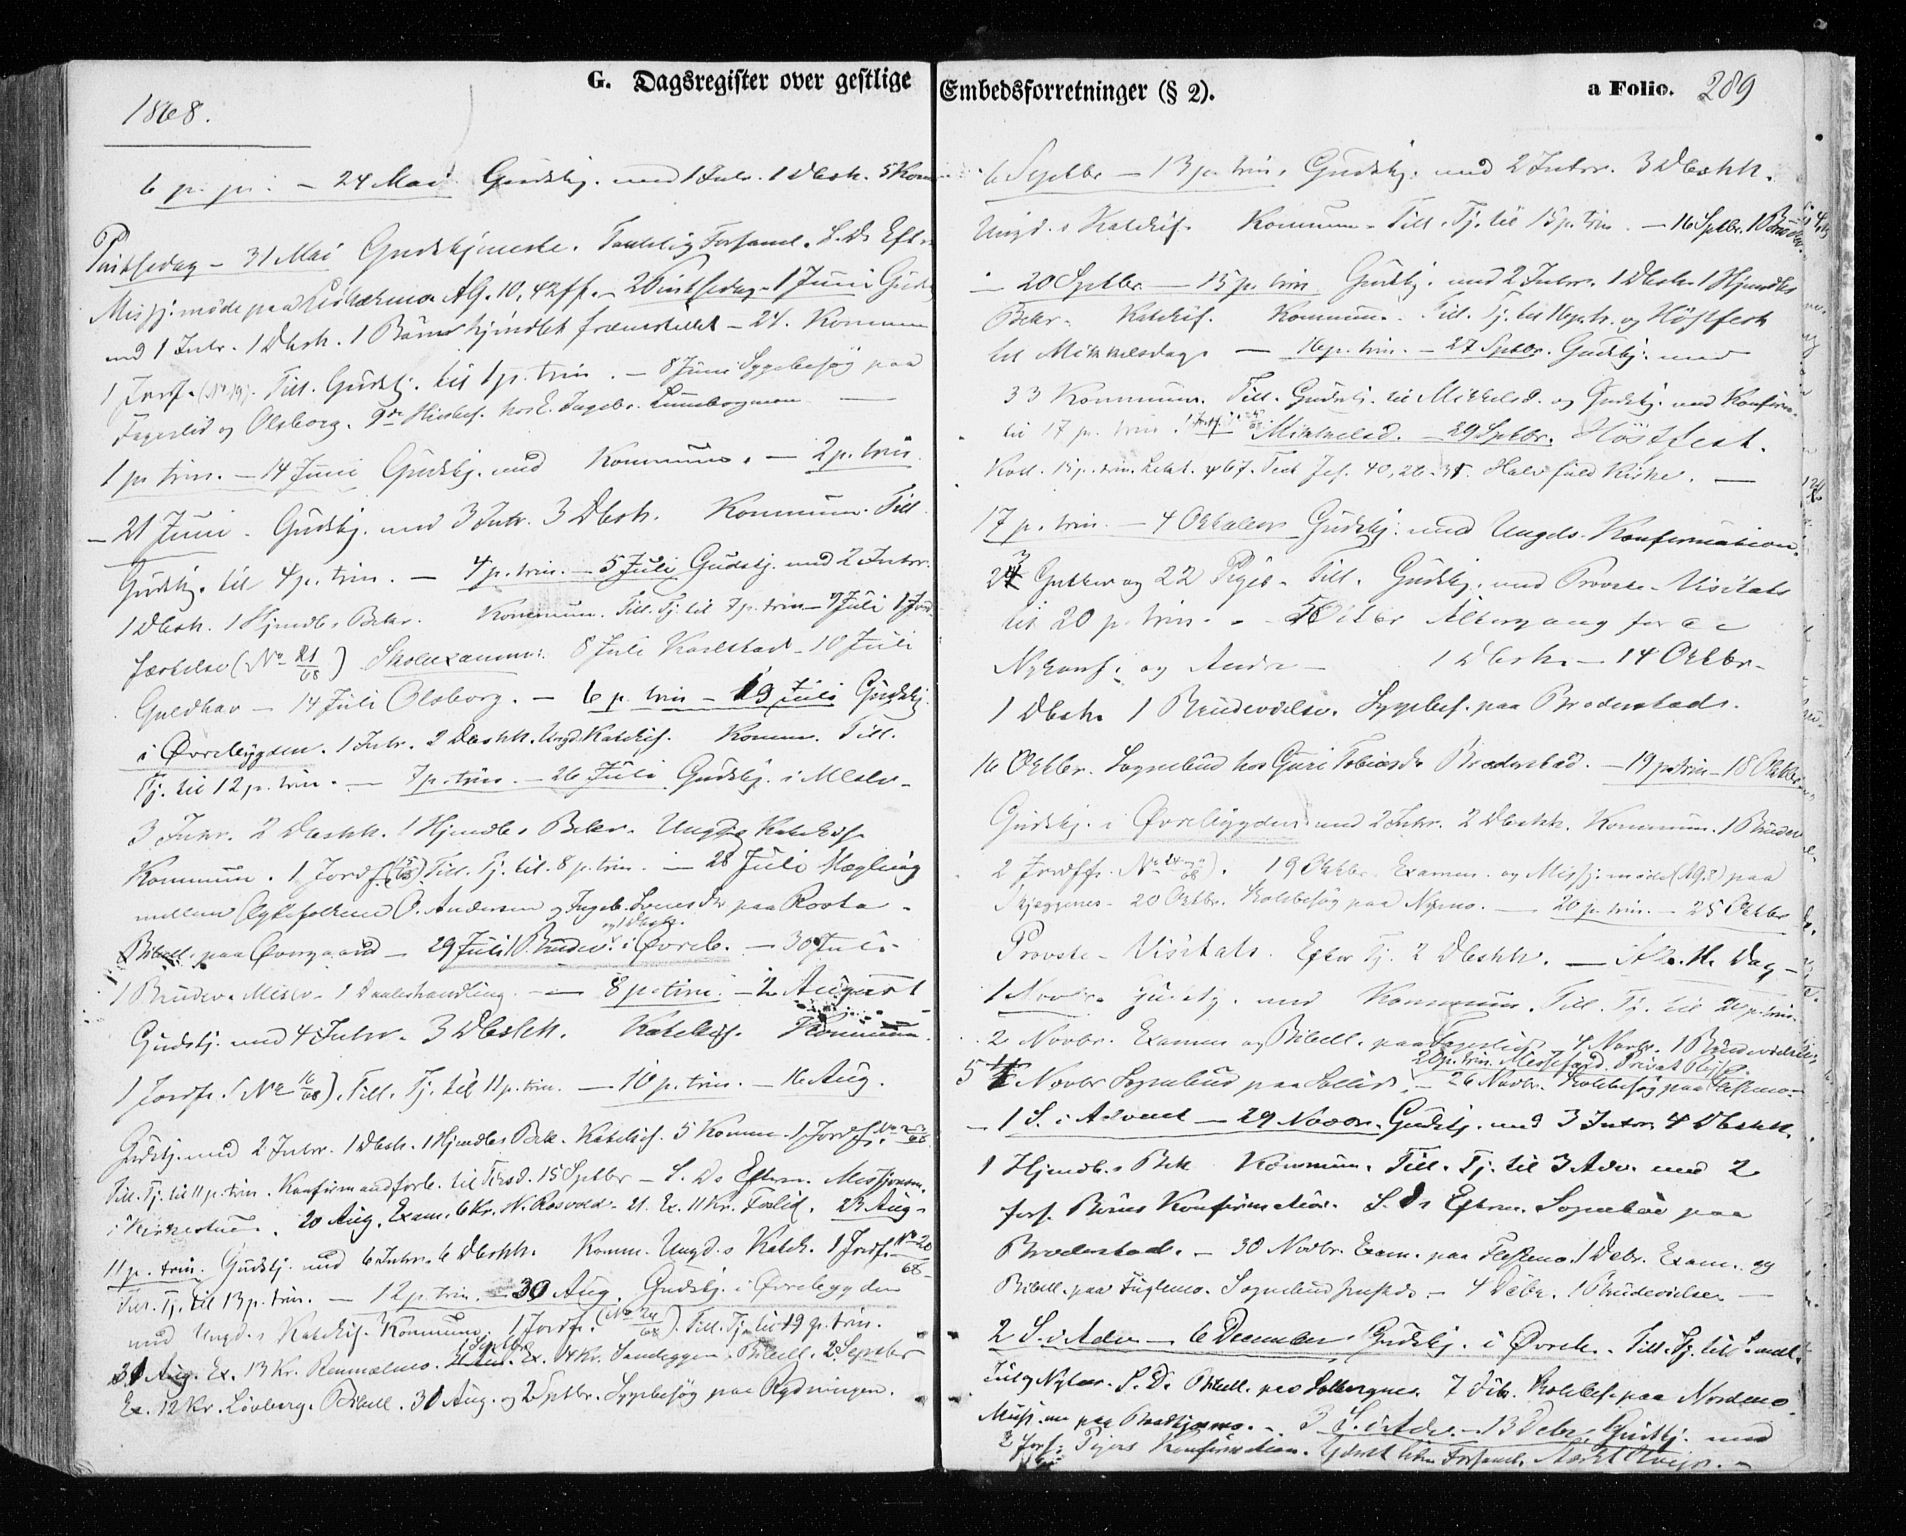 G. Dagsregister over gestlige
1868.
6 p. p. - 24 Mai. Gudstj. med 1 Intr. 1 Dbsh. 5 Kom
Pintsedag - 31 Mai Gudstjeneste. Talrig Forsaml. S. D. Eft.
Missj:møde paa AG. 10, 42ff. - 2 Pintsedag - 1 Juni Guds
med 1 Intr. 1 Dbsh. 1 Barns hjmdbt fremstillet - 24. Kommun
1 Jordf. (No 19). Till. Gudstj. til 1 p. trin. - 8 Juni Sygebesøg paa
Fagerlid og Olsborg. hos E. Ingebr.
1 p. trin. - 14 Juni Gudstj. med Kommun. - 2 p. trin.
- 21 Juni. Gudstj. med 3 Intr. 3 Dbsh. Kommun. Till.
Gudstj. til 4 p. trin. - 4 p. trin. - 5 Juli Gudstj. med 2 Intr.
1 Dbsh. 1 Hjmdbs Bekr. Kommun. Till. Tj. til 7 p. trin - 7 Juli 1 Jord
fæstelse (No 21/68) Skolexamen: 8 Juli Karlstad - 10 Juli
Guldhav - 14 Juli Olsborg. - 6 p. trin - 19 Juli Gudstj.
i Øvrebygden. 1 Intr. 2 Dbshh. Ungd. Katekis. Komm. Till.
Tj. til 12 p. trin. - 7 p. trin. - 26 Juli Gudstj. i Mslv.
3 Intr. 2 Dbshh. 1 Hjmdbs Bekr. Ungds Katekis.
Kommun. 1 Jordf. Till. Tj. til 8 p. trin. - 28 Juli Mægling
mellem Ægtefolkene O. Andersen og Ingeb. paa Rosta -
og 1 Dbsh.
Bibell. paa Øvergaard - 29 Juli 1 Brudev. i Øvreb. - 30 Juli
1 Brudev. Mslv. 1 Daabshandling. - 8 p. trin. - 2 August
Gudstj. med 4 Intr. 3 Dbshh. Katekis. Kommun.
1 Jordf. (No 16/68). Till. Tj. til 11 p. trin. - 10 p. trin. - 16 Aug.
Gudstj. med 2 Intr. 1 Dbsh. 1 Hjmdbs Bek. Katekis. 5 Komm. 1 Jordf.
Till. Tj. til 11 p. trin. Konfirmandforb. til Tirsd. 15 Septbr - S. D. Efterm. Missjonsm.
i . 20 Aug. Exam. 6 Kr. N. Rosvold - 21. Ex. 11 Kr. . 23 Aug -
11 p. trin. Gudstj. med 6 Intr. 6 Dbshh. Komm. Ungd.s Katek. 1 Jordf. No 20/68 -
Till. Tj. til 13 p. trin. - 12 p. trin. - 30 Aug. Gudstj. i Øvrebygden
med Ungd.s Katekis. Kommun. 1 Jordf. (No 24/68). Till. Tj. til 19 p. trin.
31 Aug. Ex. 13 Kr. Rennælmo. Ex. 14 Kr. Sandeggen. Bibell. 2 Septbr
Ex. 12 Kr. Løvberg. Bibell. 31 Aug. og 2 Sptbr. Sygebesøg paa Rydningen.
Embedsforretninger (§ 2).
a Folio. 289
6 Septbr - 13 p. trin. Gudstj. med 2 Intrr. 3 Dbshh.
Ungd.s Katekis. Kommun. Till. Tj. til 15 p. trin. - 16 Sptbr. 1 Brudev.
- 20 Sptbr. - 15 p. trin. Gudstj. med 2 Intrr. 1 Dbsh. 1 Hjmdbs
Bekr. Katekis. Kommun. Till. Tj. til og Høstfest
til Mikkelsdag. - 16 p. trin. - 27 Sptbr. Gudstj. med
33 Kommun. Till. Gudstj. til Mikkelsd. og Gudstj. med Konfirm.
til 17 p. trin. Mikkelsd. - 29 Sptbr. Høstfest.
Koll. 15 p. trin. 467. Text Jes. 40, 26-31. Halv fuld Kirke. -
17 p. trin. - 4 Oktober Gudstj. med Ungds. Konfirmation.
23 Gutter og 22 Piger. Till. Gudstj. med Provste-Visitats
til 20 p. trin. - 5 Oktbr Altergang for
Nykonf: og Andre - 1 Dbsh. - 14 Oktbr -
1 Dbsh. 1 Brudevielse. Sygebes. paa Broderstads.
16 Oktbr. Sognebud hos Guri Tobiasdr Broderstad. - 19 p. trin - 18 Oktbr
Gudstj. i Øvrebygden med 2 Intr. 2 Dbshh. Kommun. 1 Brudev
2 Jordff. . 19 Oktbr. Examen. og Missj:møde (AG. 8) paa
Skjeggenes - 20 Oktbr. Skolebesøg paa Nymo. - 20 p. trin. - 25 Oktbr
Provste-Visitats. Efter Tj. 2 Dbshh. - All. H. Dag -
1 Novbr. Gudstj. med Kommun. Till. Tj. til p. trin.
2 Novbr. Examen og Bibell. paa Fagerlid. 4 Novbr. 1 Brudevielse.
p. trin. Messefald. Privat Rejse
5 Novbr Sognebud paa . - 26 Novbr. Skolebesøg paa Flesmo -
- 1 S. i Advent - 29 Novbr. Gudstj. med 3 Intr. 4 Dbshh.
1 Hjmdb.s Bek. Kommun. Till. Tj. til 3 Adv. med 2
forf. Børns Konfirmation. S. D. Efterm. Sognebud paa
Broderstad. - 30 Novbr. Exam. paa Flesmo. 1 Debr. Exam. og
Bibell. paa Fuglemo. Sognebud - 4 Debr. 1 Brudevielse -
2 S. i Adv. - 6 December. Gudstj. i Øvreb. Till. Tj. til
Jul og Nytaar. S. D. Bibell. paa Solbergnes. 7 Debr. Skolebes. paa Nordmo
Miss. m. paa . - 3 S. i Adv. - 13 Debr. Gudstj. med
2 forf: Pigers Konfirmation. liden Forsaml.